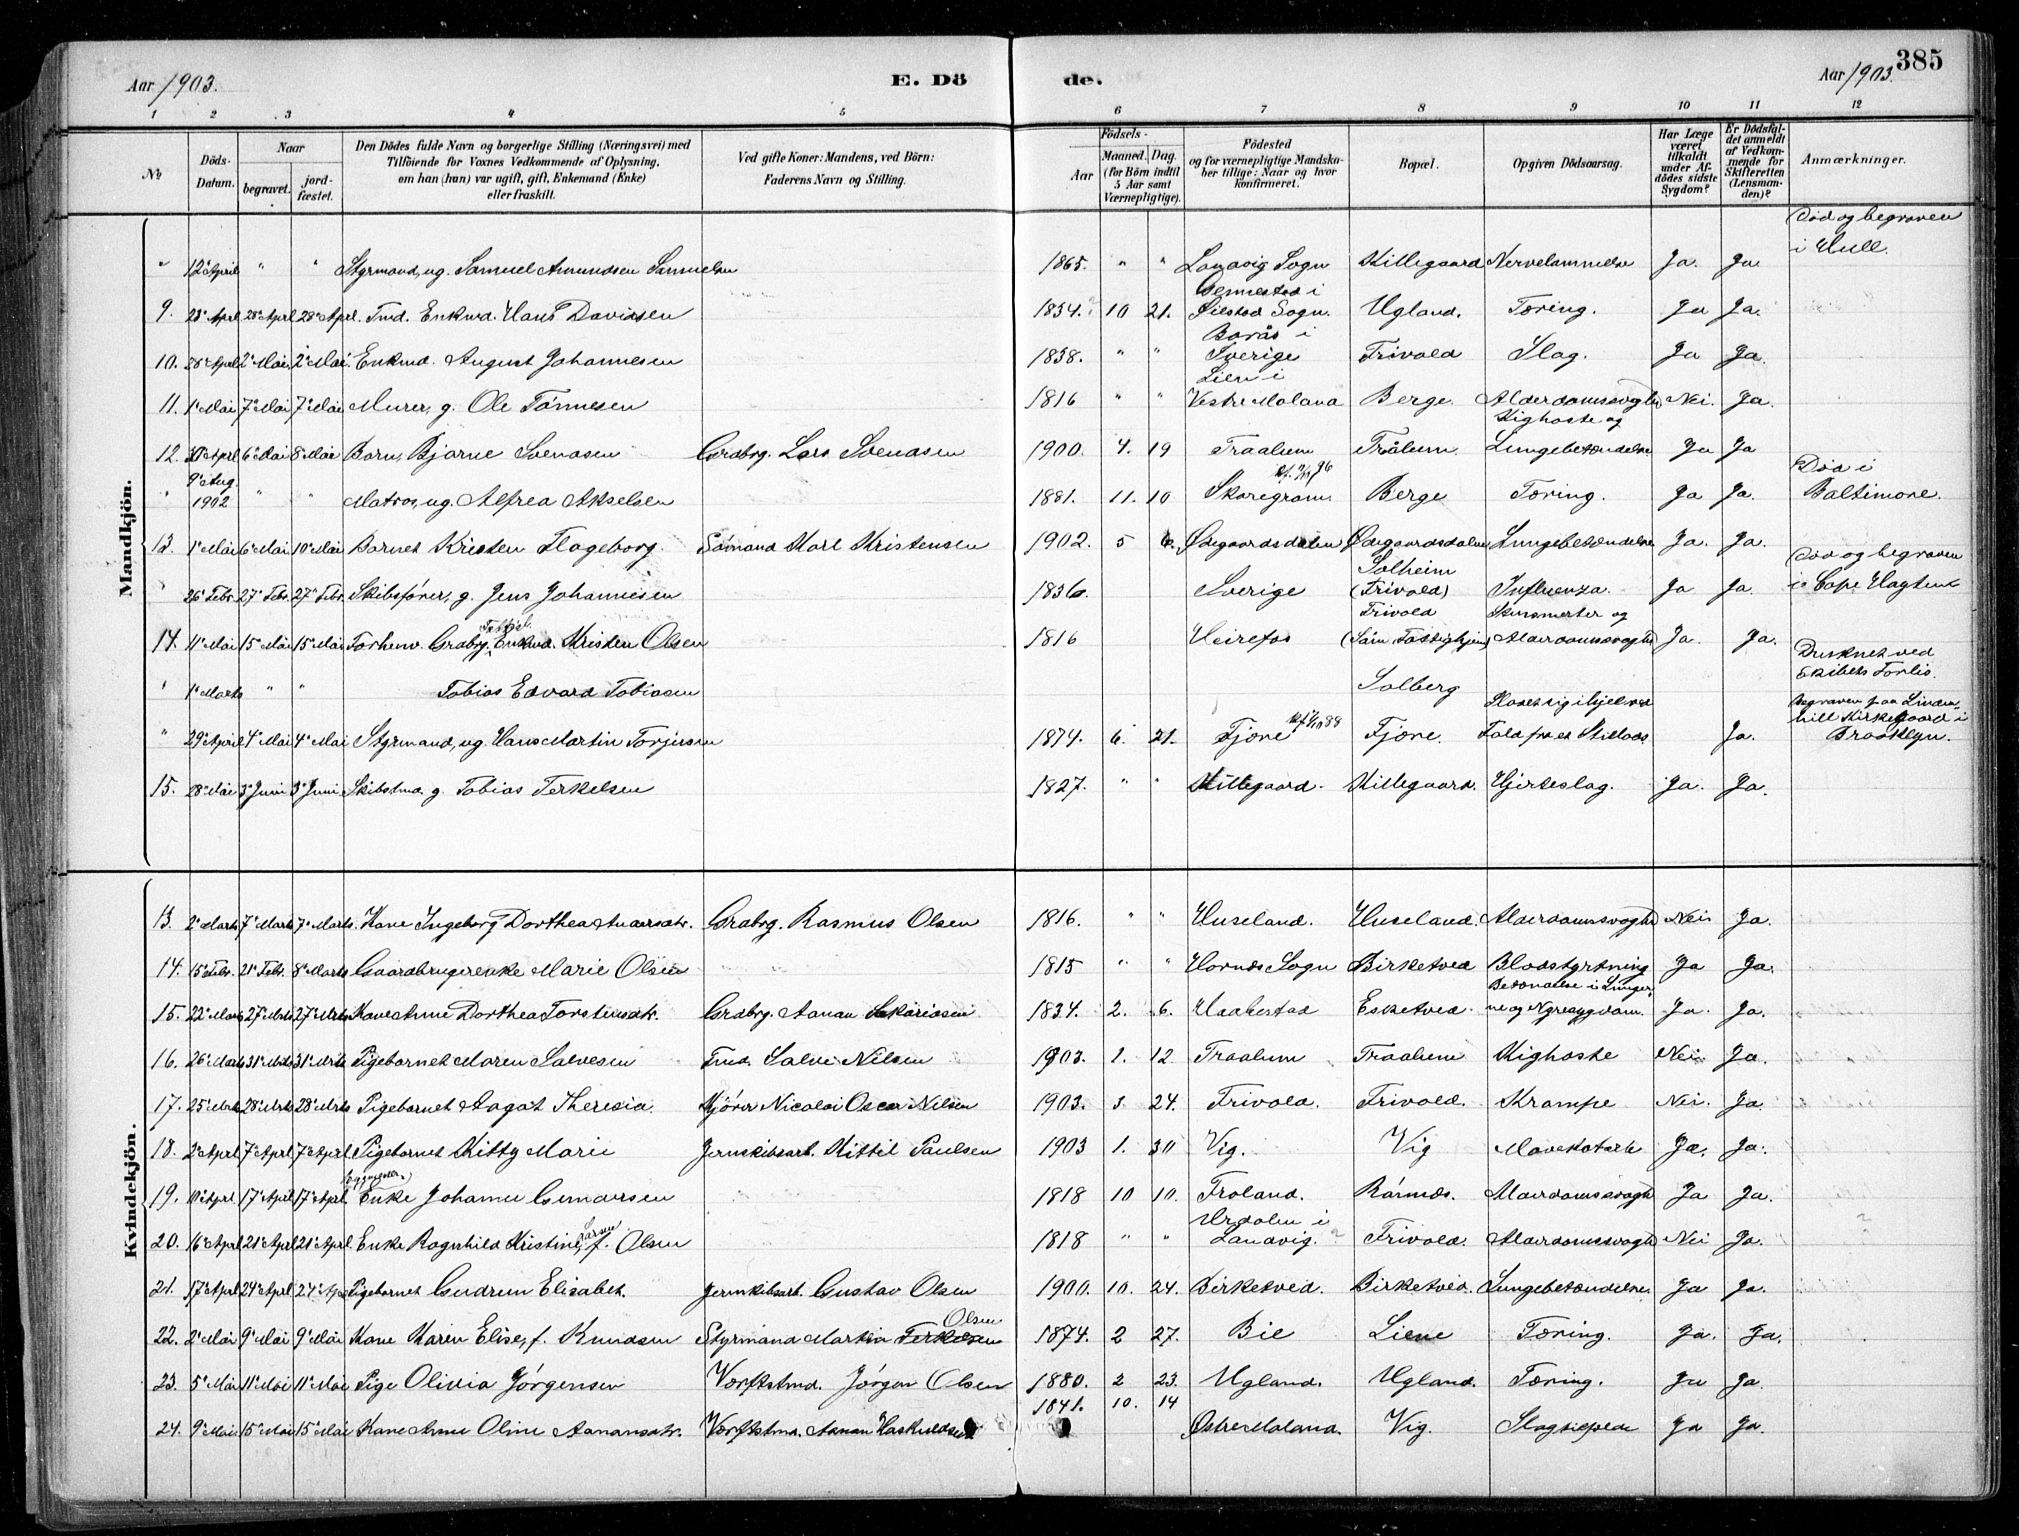 Aar 1903. E. Dö de. Aar 1903. 385
1 2 3 4 5 6 7 8 9 10 11 12
No
Döds-Datum.
Naar begravet. jordfæstet.
Den Dödes fulde Navn og borgerlige Stilling (Næringsvei) med
Tilföiende for Voxnes Vedkommende af Oplysning,
om han (hun) var ugift, gift, Enkemand (Enke)
eller fraskilt.
Ved gifte Koner: Mandens, ved Börn:
Faderens Navn og Stilling.
Födsels-
Aar Maaned. Dag.
(for Börn indtil
5 Aar samt
Værnepligtige).
Födested
og for værnepligtige Mandska-
ber tillige: Naar og hvor
konfirmeret.
Bopæl.
Opgiven Dödsaarsag.
Har Læge
været
tilkaldt
under Af-
dödes sidste
Sygdom?
Er Dödsfal-
det anmeldt
af Vedkom-
mende for
Skifteretten
(Lensman-
den)?
Anmærkninger.
Mandkjön.
" 12 April " " Styrmand, ug. Samuel Amundsen Samuelsen 1865. " " Landvig Sogn Killegaard Nervelammelse Ja. Ja. Död og begraven i Hull.
9. 23 April 28 April 28 April. Tmd. Enkmd. Hans Davidsen 1834. 10 21. Gennestad i Øiestad Sogn. Ugland. Tæring. Ja Ja.
10. 28 April 2 Mai 2 Mai Enkmd. August Johannesen 1838. " " Borås i Sverige Frivold Slag. Ja Ja.
11. 1 Mai 7 Mai 7 Mai Murer, g. Ole Tönnesen 1816 " " Lien i Vestre Moland Berge. Alderdomssvaghd Nei. Ja.
12. 30 April 6 Mai 8 Mai Barn, Bjarne Svendsen Grdbrg. Lars Svendsen 1900. 4. 19 Traalum Trålum Kighoste og Lungebetændelse Ja Ja
" 9 Aug. 1902 " " Matros, ug. Alfred Akselsen 1881. 11. 10 Skaregrøm Berge Tæring. Ja Ja. Död i Baltimore.
13. 1 Mai 6 Mai 10 Mai Barnet Kristen Flageborg. Sömand Karl Kristensen 1902. 5 6. Ødegaardsdalen Ødegaardsdalen Lungebetændelse Ja. Ja.
" 26 Febr. 27 Febr. 27 Febr. Skibsfører, g. Jens Johannesen 1836. Sverige Solheim (Frivold) Influenza. Ja Ja. Död og begraven i Cape Haytien
14. 11 Mai 15 Mai 15 Mai Forhenv. Grdbrg. Enkmd. Kristen Olsen 1816 Heirefos Frivold Alderdomssvaghd Ja. Ja.
" 1 Marts " " Tobias Edvard Tobiasen Solberg Druknet ved Skibets Forlis.
" 29 April 4 Mai 4 Mai Styrmand, ug. Hans Martin Torjusen 1874. 6. 21. Fjære Fjære. Ja. Begraven paa Linden hill Kirkegaard i Brooklyn.
15. 28 Mai 3 Juni 3 Juni Skibstmd. g. Tobias Terkelsen 1827. " " Killegaard. Killegaard. Hjerteslag. Ja. Ja.
Kvindekjön.
13. 2 Marts 7 Marts 7 Marts. Kone Ingeborg Dorthea Andersdtr. Grdbrg. Rasmus Olsen 1816. " " Huseland. Huseland. Alderdomssvaghd Nei Ja.
14. 15 Febr. 21 Febr. 8 Marts Gaardbrugerenke Marie Olsen 1815 " " Hornes Sogn Birketved Blodstyrtning Ja Ja.
15. 22 Marts 27 Marts 27 Mrts Kone Anne Dorthea Torstensdtr. Grdbrg. Aanon Sakariasen 1834. 2. 6. Haabestad Esketved Betændelse i Lunger ne og Nyresygdom. Ja. Ja.
16. 26 Marts 31 Mrts 31 Mrts Pigebarnet Maren Salvesen Tmd. Salve Nilsen 1903. 1. 12 Traalum Traalum Kighoste Nei Ja.
17. 25 Mrts 28 Mrts 28 Mrts Pigebarnet Aagot Theresia Kjörer Nicolai Oscar Nilsen 1903. 3 24. Frivold. Frivold. Krampe Nei. Ja.
18. 2 April 7 April 7 April. Pigebarnet Kitty Marie Jernskibsarb. Kittil Paulsen 1903 1. 30 Vig. Vig Mavekatarh Ja. Ja.
19. 10 April 17 April 17 April. Enke Johanne Gundersen 1818 10 10. Froland. Rönnes. Alderdomssvaghd Ja Ja.
20. 16 April 21 April 21 April. Enke Ragnhild Kristine, f. Larsen Olsen 1818 " " Urdalen i Landvig. Frivold. Alderdomssvaghd Nei Ja.
21. 17 April 24 April 24 April Pigebarnet Gudrun Elisabet. Jernskibsarb. Gustav Olsen 1900. 10. 24. Birketved. Birketved. Lungebetændelse. Ja Ja.
22. 2 Mai 9 Mai 9 Mai Kone Karen Elise, f. Knudsen Styrmand Martin Terkelsen Olsen 1874. 2 27. Bie Liene Tæring. Ja. Ja.
23. 5 Mai 11 Mai 11 Mai Pige Olivia Jørgensen Værftstmd. Jørgen Olsen 1880. 2 23. Ugland. Ugland. Tæring. Ja Ja.
24. 9 Mai 15 Mai 15 Mai Kone Anne Oline Aanonsdtr. Værftstmd. Aanon Haskuldsen 1841. 10. 14 Østre Moland. Vig. Slagtilfælde Ja Ja.